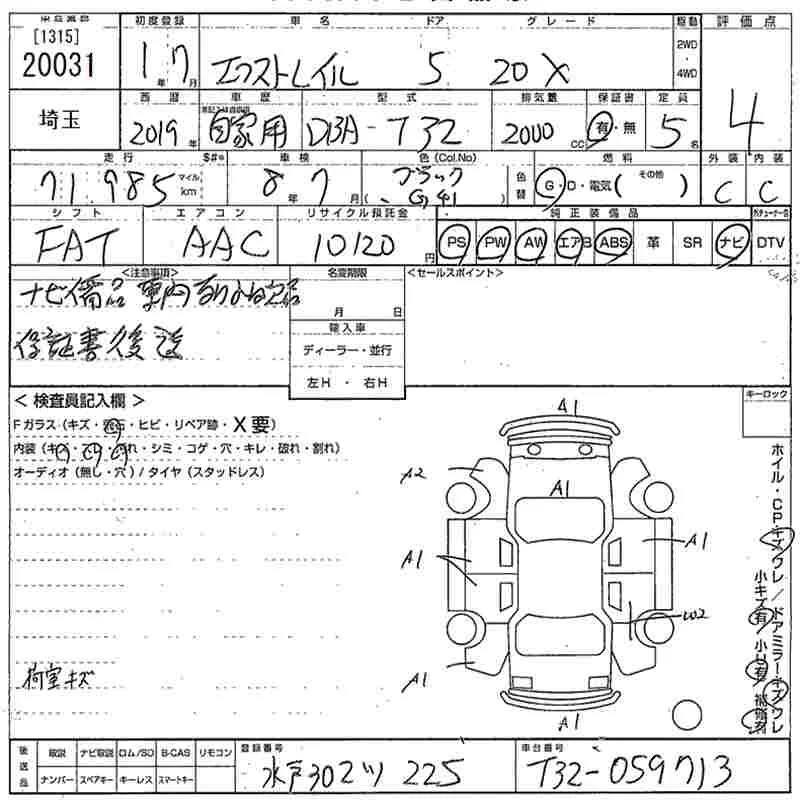 [1315]
20031
初度登録 車名 ドア グレード 駆動 評価点
1年 7月 エクストレイル 5 20X 2WD・4WD
埼玉
西暦 車歴 型式 排気量 保証書 定員
2019年 自家用 DBA-T32 2000cc 有・無 5名 4
走行 車検 色(Col.No) 燃料 外装 内装
71,985 マイル km 8年 7月 ブラック G41 色替 G・D・電気( その他 ) C C
シフト エアコン リサイクル預託金 純正装備品
FAT AAC 10120円 PS PW AW エアB ABS 革 SR ナビ DTV
<注意事項> 名変期限 <セールスポイント>
ナビ備品
月 日
保証書後送
輸入車
ディーラー・並行
左H・右H
<検査員記入欄> キーロック
Fガラス(キズ・飛石・ヒビ・リペア跡・X要)
内装(キズ・ ・ ・シミ・コゲ・穴・キレ・破れ・割れ)
オーディオ(無し・穴)/タイヤ(スタッドレス)
A1
A2
A1
A1
A1
W2
A1
A1
荷室キズ
ホイル・CP・キズ/ワレ/ドアミラーキズ/ワレ
小キズ有 小凹有 補修有
後送品 取説 ナビ取説 ロム/SD B-CAS リモコン 登録番号 車台番号
ナンバー スペアキー キーレス スマートキー 水戸302ツ 225 T32-059713